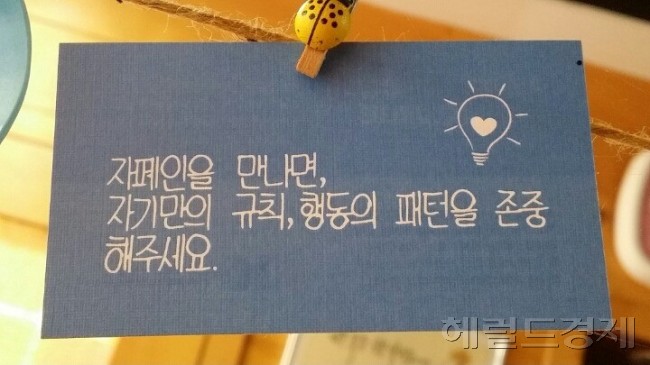 자폐인을 만나면,
자기만의 규칙, 행동의 패턴을 존중
해주세요.
헤럴드경제